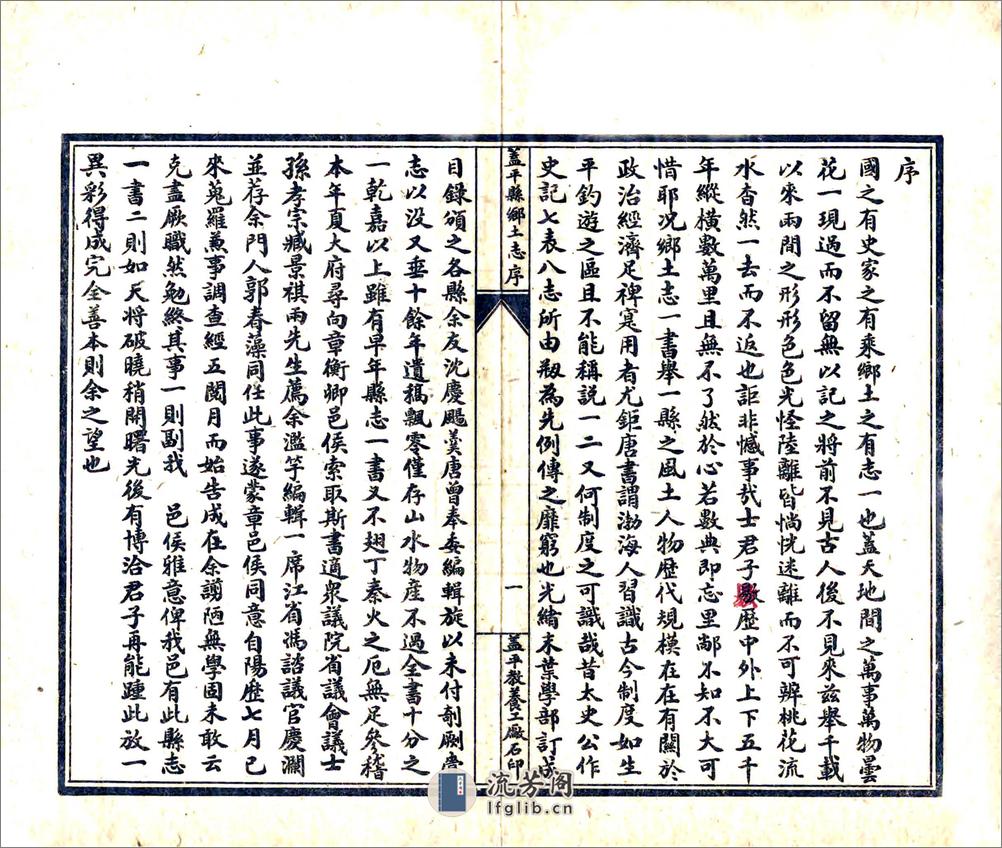 序
國之有史家之有乘鄉土之有志一也蓋天地間之萬事萬物曇
花一現過而不留無以記之將前不見古人後不見來茲舉千載
以來兩間之形形色色光怪陸離皆惝恍迷離而不可辨桃花流
水杳然一去而不返也詎非憾事哉士君子歇歷中外上下五千
年縱橫數萬里且無不了然於心若數典即忘里鄙不知不大可
惜耶況鄉土志一書舉一縣之風土人物歷代規模在在有關於
政治經濟足裨寔用者尤鉅唐書謂渤海人習識古今制度如生
平釣遊之區且不能稱說一二又何制度之可識哉昔太史公作
史記七表八志所由叙為先例傳之靡窮也光緒末葉學部訂成
蓋平縣鄉土志序
一
蓋平教養工廠石印
目錄頒之各縣余友沈慶颺羹唐曾奉委編輯旋以未付剞劂賫
志以沒又垂十餘年遺稿飄零僅存山水物產不過全書十分之
一乾嘉以上雖有早年縣志一書又不翅丁秦火之厄無足參稽
本年夏大府尋向章衡卿邑侯索取斯書適衆議院省議會議士
孫孝宗臧景祺兩先生薦余濫竽編輯一席江省馮諮議官慶瀾
並荐余門人郭春藻同任此事遂蒙章邑侯同意自陽歷七月已
來蒐羅兼事調查經五閱月而始告成在余謭陋無學固未敢云
克盡厥職然勉終其事一則副我 邑侯雅意俾我邑有此縣志
一書二則如天將破曉稍開曙光後有博洽君子再能踵此放一
異彩得成完全善本則余之望也
流芳閣
lfglib.cn